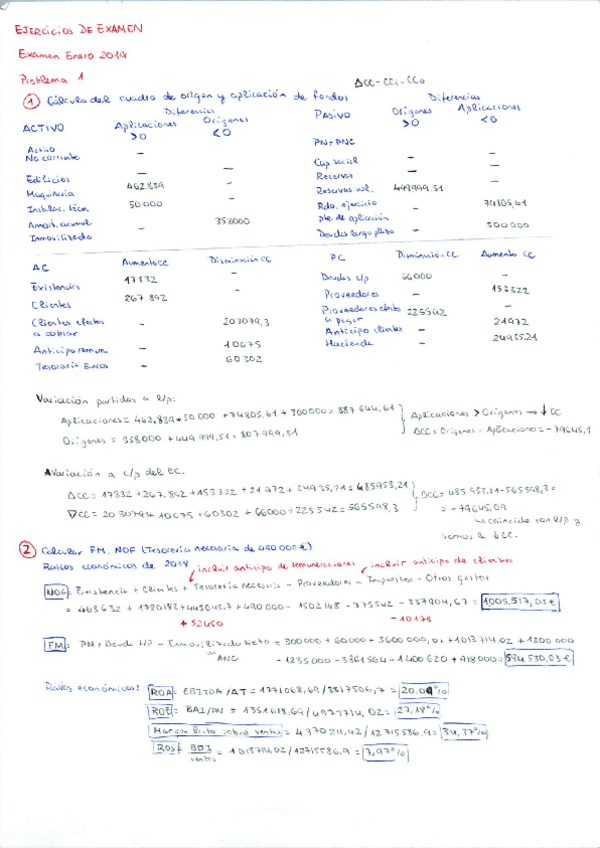 EJERCICIOS DE EXAMEN
Examen Enero 2019
Problema 1
ΔCC = CC1 - CC0
① Cálculo del cuadro de origen y aplicación de fondos
Diferencias
ACTIVO Aplicaciones >0 Orígenes <0
Activo No corriente - -
Edificios - -
Maquinaria 462.839 -
Instalac. técn. 50000 -
Amort. acumul. Inmovilizado - 358000
Diferencias
PASIVO Orígenes >0 Aplicaciones <0
PN+PNC
Cap. social - -
Reservas - -
Reservas vol. 449999.51 -
Rdo. ejercicio pte de aplicación - 74805,61
Deudas largo plazo - 300000
AC Aumento CC Disminución CC
Existencias 17832 -
Clientes 267.892 -
Clientes efectos a cobrar - 203079,3
Anticipo remun. - 10675
Tesorería - 60302
PC Disminución CC Aumento CC
Deudas c/p 66000 -
Proveedores - 153322
Proveedores efectos a pagar 225542 -
Anticipo clientes - 21972
Hacienda - 24935,21
Variación partidas a l/p:
Aplicaciones = 462,839 + 50 000 + 74805,61 + 300000 = 887 644,61
Orígenes = 358000 + 449 999,51 = 807 999,51
Aplicaciones > Orígenes → ↓ CC
ΔCC = Orígenes - Aplicaciones = -79645,1
Variación a c/p del cc.
ΔCC = 17832 + 267,892 + 153322 + 21 972 + 24935,21 = 485953,21
∇CC = 203079,3 + 10675 + 60302 + 66000 + 225542 = 565598,3
ΔCC = 485 953,21 - 565598,3 =
= -79645,09
↳ coincide con l/p y
vemos le ↓ CC.
② Calcular FM, NOF (Tesorería necesaria de 490000 €)
Ratios económicos de 2018
incluir anticipo de remuneraciones
incluir anticipo de clientes
NOF = Existencia + Clientes + Tesorería necesaria - Proveedores - Impuestos - Otros gastos
= 463632 + 1780182 + 445045,7 + 490000 - 1502148 - 775542 - 337904,67 = 1005,517,03€
+ 52450
- 10178
FM = PN + Deuda l/p - Inmovilizado Neto = 300000 + 60000 + 3600000,01 + 1013714,02 + 1200000
ANC
- 1235000 - 3361564 - 1400620 + 418000 = 594 530,03€
Ratios económicos:
ROA = EBITDA/AT = 1771068,69/8817506,7 = 20.09%
ROE = BAI/PN = 1351618,69/4973714,02 = 27,18%
Margen Bruto sobre ventas = 4370211,42/12715586,9 = 34,37%
ROS = BDI/ventas = 1013714,02/12715586,9 = 7,97%